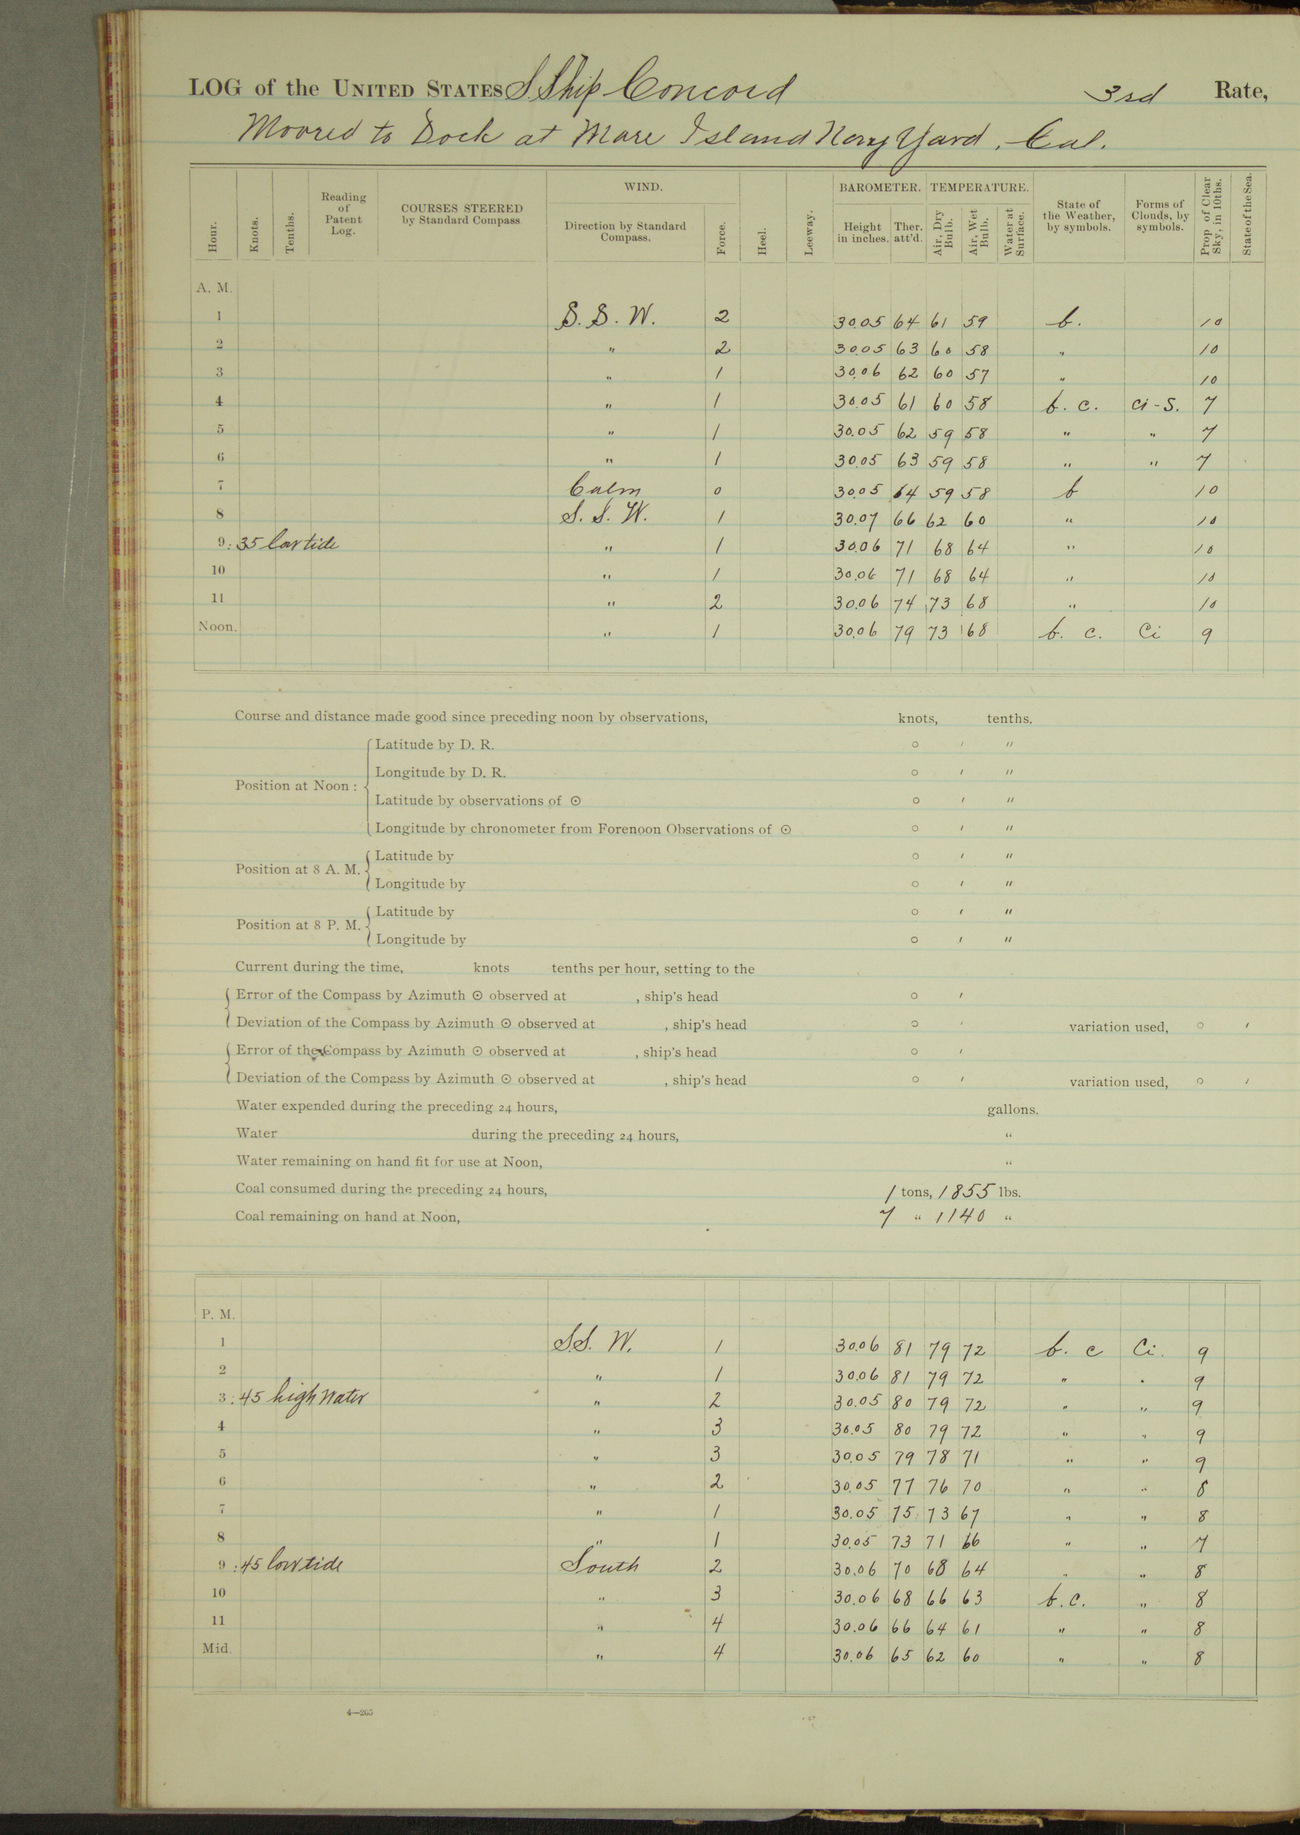 LOG of the UNITED STATES S Ship Concord 3rd Rate,
Moored to Dock at Mare Island Navy Yard, Cal.
Hour. Knots. Tenths. Reading of Patent Log. COURSES STEERED by Standard Compass WIND. Direction by Standard Compass. Force. Heel. Leeway. BAROMETER. Height in inches. Ther. att'd. TEMPERATURE. Air, Dry Bulb. Air, Wet Bulb. Water at Surface. State of the Weather, by symbols. Forms of Clouds, by symbols. Prop. of Clear Sky, in 10ths. State of the Sea.
A. M.
1 S. S. W. 2 30.05 64 61 59 b. 10
2 " 2 30.05 63 60 58 " 10
3 " 1 30.06 62 60 57 " 10
4 " 1 30.05 61 60 58 b. c. Ci-S. 7
5 " 1 30.05 62 59 58 " " 7
6 " 1 30.05 63 59 58 " " 7
7 Calm 0 30.05 64 59 58 b 10
8 S. S. W. 1 30.07 66 62 60 " 10
9 :35 low tide " 1 30.06 71 68 64 " 10
10 " 1 30.06 71 68 64 " 10
11 " 2 30.06 74 73 68 " 10
Noon. " 1 30.06 79 73 68 b. c. Ci 9
Course and distance made good since preceding noon by observations, knots, tenths.
Position at Noon : Latitude by D. R. ° ′ ″
Longitude by D. R. ° ′ ″
Latitude by observations of ⊙ ° ′ ″
Longitude by chronometer from Forenoon Observations of ⊙ ° ′ ″
Position at 8 A. M. Latitude by ° ′ ″
Longitude by ° ′ ″
Position at 8 P. M. Latitude by ° ′ ″
Longitude by ° ′ ″
Current during the time, knots tenths per hour, setting to the
Error of the Compass by Azimuth ⊙ observed at , ship's head ° ′
Deviation of the Compass by Azimuth ⊙ observed at , ship's head ° ′ variation used, ° ′
Error of the Compass by Azimuth ⊙ observed at , ship's head ° ′
Deviation of the Compass by Azimuth ⊙ observed at , ship's head ° ′ variation used, ° ′
Water expended during the preceding 24 hours, gallons.
Water during the preceding 24 hours, "
Water remaining on hand fit for use at Noon, "
Coal consumed during the preceding 24 hours, 1 tons, 1855 lbs.
Coal remaining on hand at Noon, 7 " 1140 "
P. M.
1 S.S. W. 1 30.06 81 79 72 b. c Ci. 9
2 " 1 30.06 81 79 72 " " 9
3 :45 high water " 2 30.05 80 79 72 " " 9
4 " 3 30.05 80 79 72 " " 9
5 " 3 30.05 79 78 71 " " 9
6 " 2 30.05 77 76 70 " " 8
7 " 1 30.05 75 73 67 " " 8
8 " 1 30.05 73 71 66 " " 7
9 :45 low tide South 2 30.06 70 68 64 " " 8
10 " 3 30.06 68 66 63 b.c. " 8
11 " 4 30.06 66 64 61 " " 8
Mid. " 4 30.06 65 62 60 " " 8
4—265